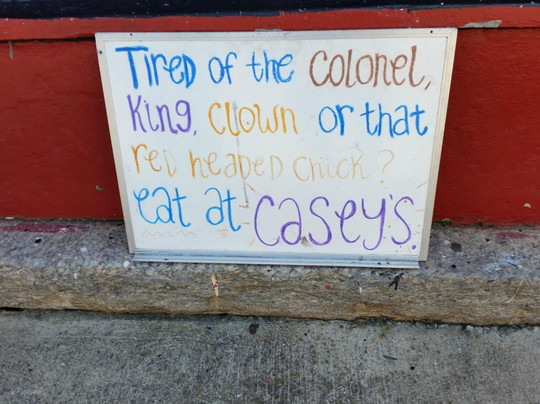 Tired of the Colonel,
King, Clown or that
red headed chick?
eat at Casey's.